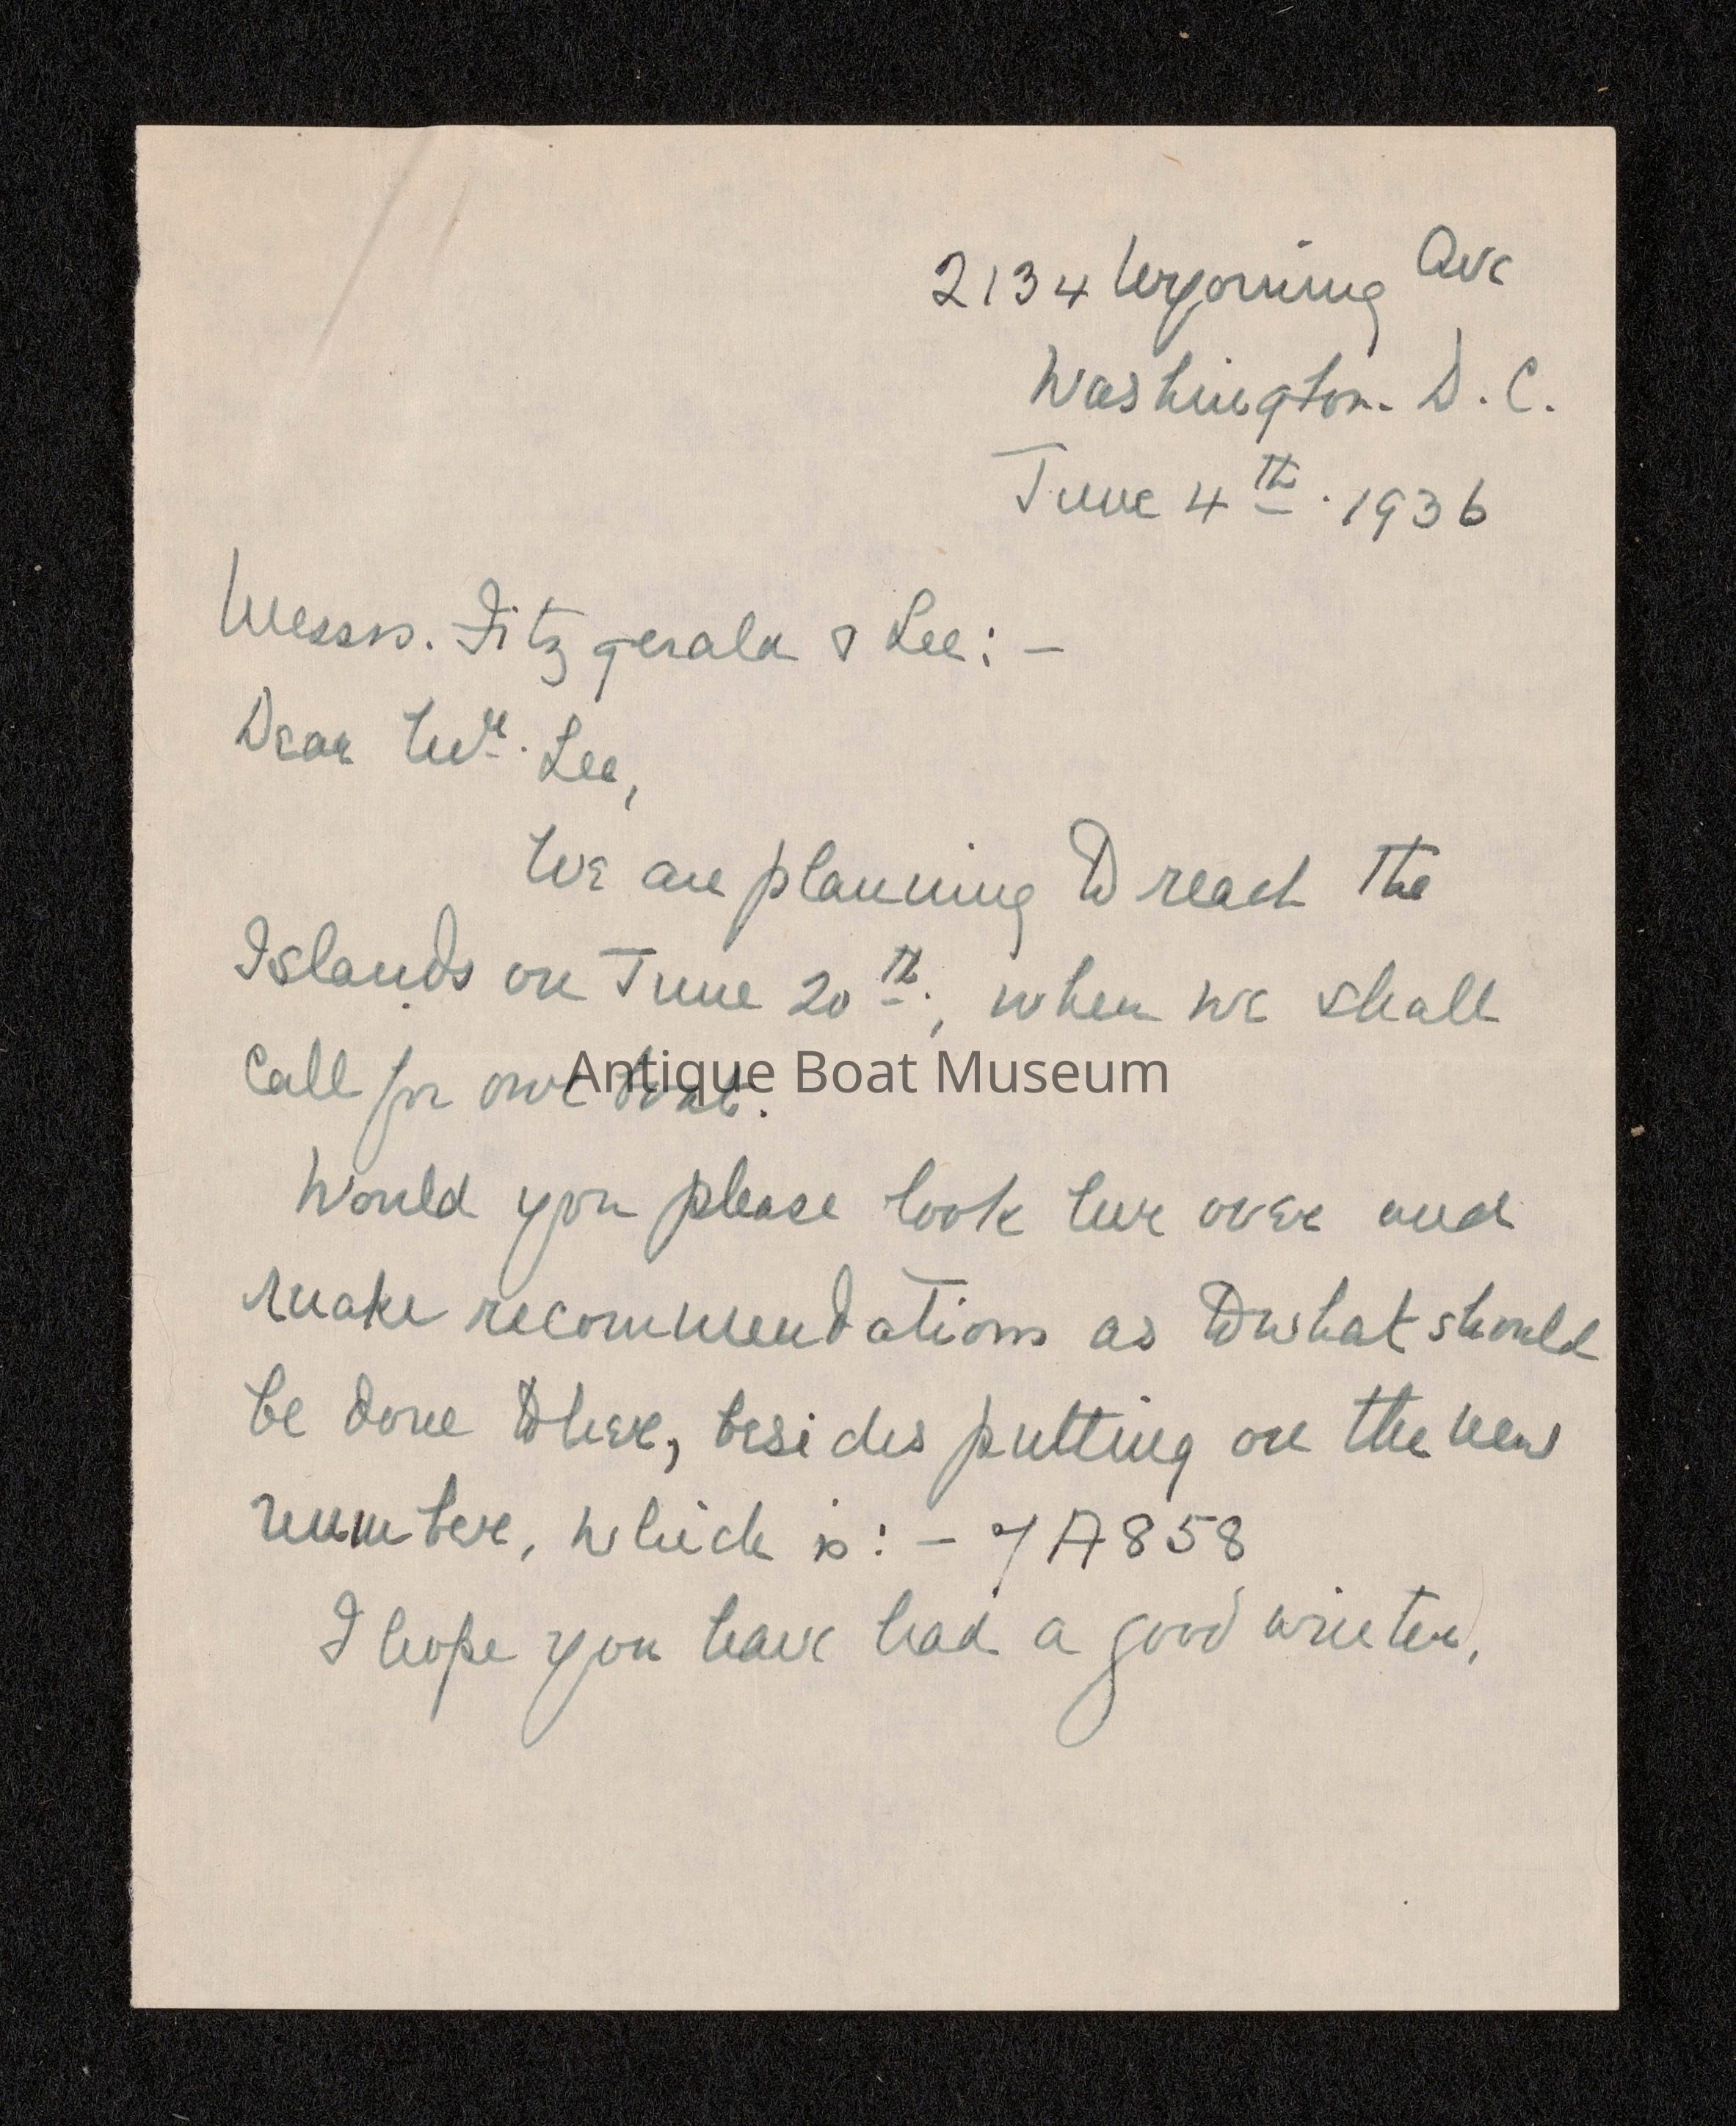 2134 Wyoming Ave
Washington. D.C.
June 4th. 1936
Messrs. Fitzgerald & Lee: -
Dear Mr. Lee,
We are planning to reach the
Islands on June 20th., when we shall
call for our boat.
Antique Boat Museum
Would you please look her over and
make recommendations as to what should
be done to her, besides putting on the new
number, which is: - 7A858
I hope you have had a good winter.